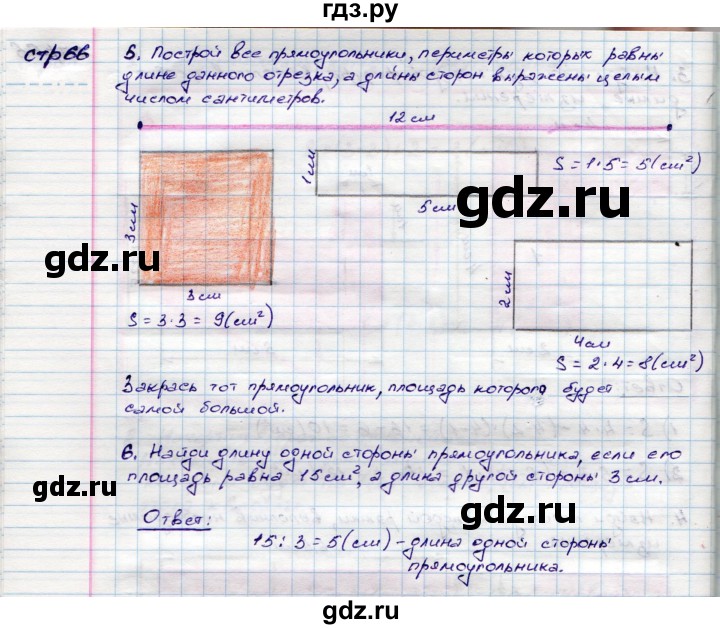 гдз.ру
стр 66
5. Построй все прямоугольники, периметры которых равны
длине данного отрезка, а длины сторон выражены целым
числом сантиметров.
12 см
1 см
S = 1·5 = 5(см²)
5 см
gdz.ru
3 см
gdz.ru
2 см
3 см
S = 3·3 = 9(см²)
4 см
S = 2·4 = 8(см²)
Закрась тот прямоугольник, площадь которого будет
самой большой.
6. Найди длину одной стороны прямоугольника, если его
площадь равна 15 см², а длина другой стороны 3 см.
gdz.ru
gdz.ru
Ответ:
15 : 3 = 5(см) – длина одной стороны
прямоугольника.
gdz.ru